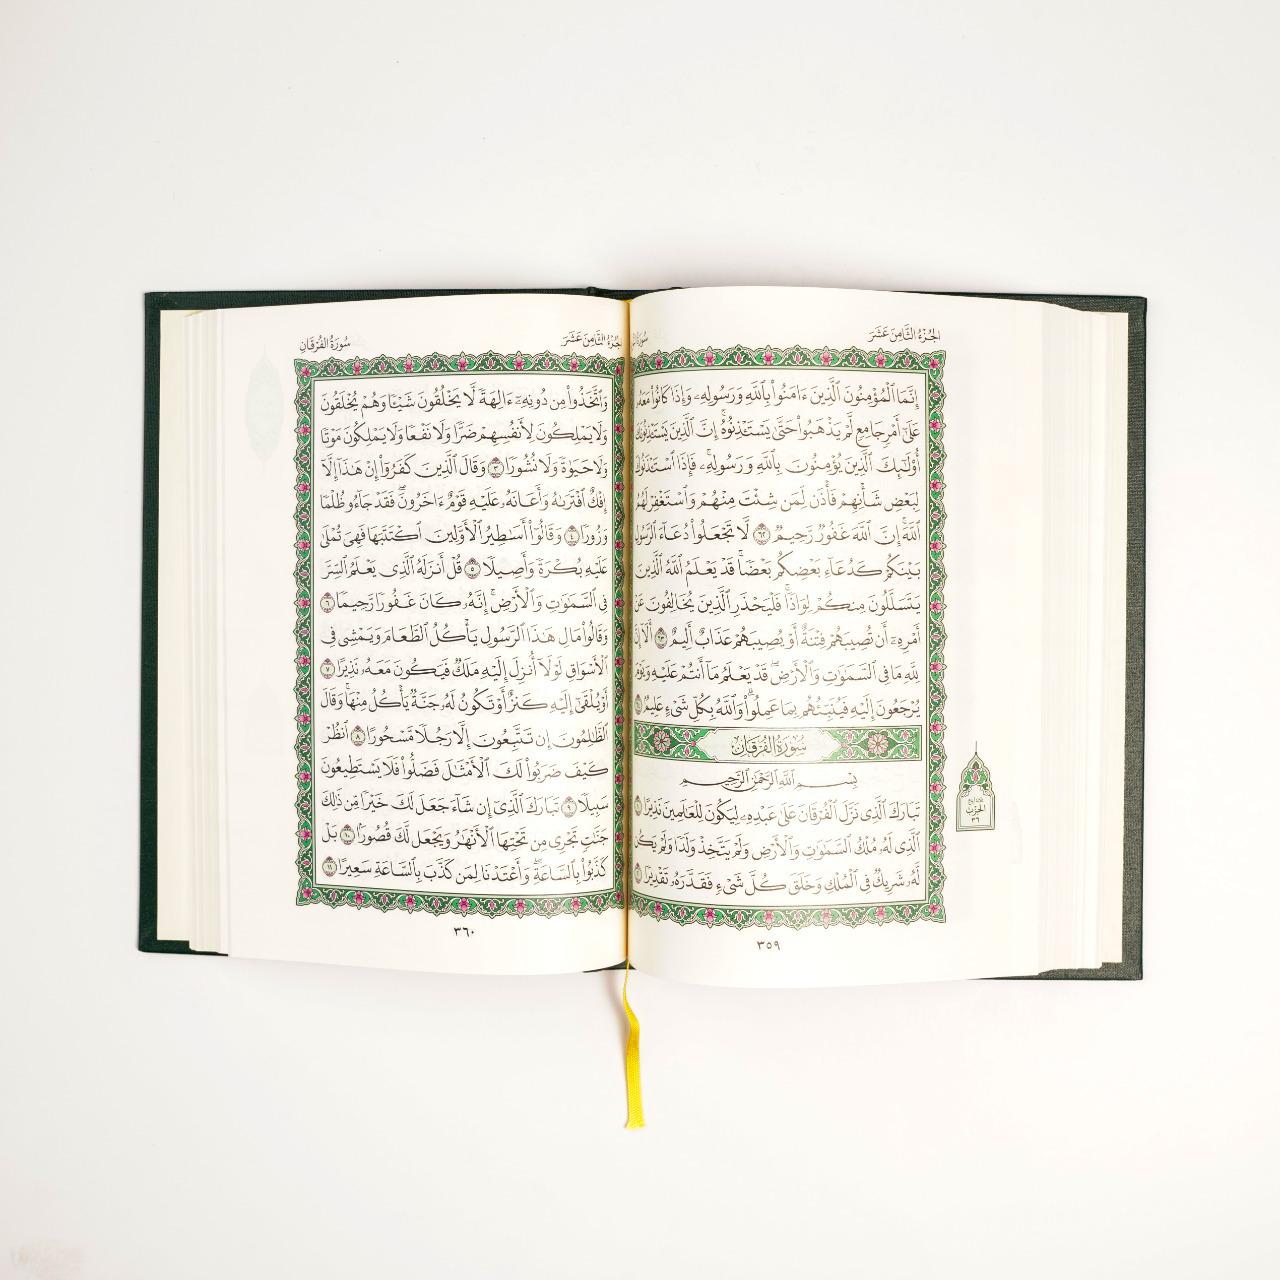 الجُزءُ الثَّامِنَ عَشَرَ
إِنَّمَا ٱلْمُؤْمِنُونَ ٱلَّذِينَ ءَامَنُوا۟ بِٱللَّهِ وَرَسُولِهِۦ وَإِذَا كَانُوا۟ مَعَهُۥ
عَلَىٰٓ أَمْرٍ جَامِعٍ لَّمْ يَذْهَبُوا۟ حَتَّىٰ يَسْتَـْٔذِنُوهُ ۚ إِنَّ ٱلَّذِينَ يَسْتَـْٔذِنُونَكَ
أُو۟لَـٰٓئِكَ ٱلَّذِينَ يُؤْمِنُونَ بِٱللَّهِ وَرَسُولِهِۦ ۚ فَإِذَا ٱسْتَـْٔذَنُوكَ
لِبَعْضِ شَأْنِهِمْ فَأْذَن لِّمَن شِئْتَ مِنْهُمْ وَٱسْتَغْفِرْ لَهُمُ
ٱللَّهَ ۚ إِنَّ ٱللَّهَ غَفُورٌ رَّحِيمٌ ٦٢ لَّا تَجْعَلُوا۟ دُعَآءَ ٱلرَّسُولِ
بَيْنَكُمْ كَدُعَآءِ بَعْضِكُم بَعْضًا ۚ قَدْ يَعْلَمُ ٱللَّهُ ٱلَّذِينَ
يَتَسَلَّلُونَ مِنكُمْ لِوَاذًا ۚ فَلْيَحْذَرِ ٱلَّذِينَ يُخَالِفُونَ عَنْ
أَمْرِهِۦٓ أَن تُصِيبَهُمْ فِتْنَةٌ أَوْ يُصِيبَهُمْ عَذَابٌ أَلِيمٌ ٦٣ أَلَآ إِنَّ
لِلَّهِ مَا فِى ٱلسَّمَـٰوَٰتِ وَٱلْأَرْضِ ۖ قَدْ يَعْلَمُ مَآ أَنتُمْ عَلَيْهِ وَيَوْمَ
يُرْجَعُونَ إِلَيْهِ فَيُنَبِّئُهُم بِمَا عَمِلُوا۟ ۗ وَٱللَّهُ بِكُلِّ شَىْءٍ عَلِيمٌۢ ٦٤
سُورَةُ الفُرْقَانِ
بِسْمِ ٱللَّهِ ٱلرَّحْمَـٰنِ ٱلرَّحِيمِ
تَبَارَكَ ٱلَّذِى نَزَّلَ ٱلْفُرْقَانَ عَلَىٰ عَبْدِهِۦ لِيَكُونَ لِلْعَـٰلَمِينَ نَذِيرًا ١
ٱلَّذِى لَهُۥ مُلْكُ ٱلسَّمَـٰوَٰتِ وَٱلْأَرْضِ وَلَمْ يَتَّخِذْ وَلَدًا وَلَمْ يَكُن
لَّهُۥ شَرِيكٌ فِى ٱلْمُلْكِ وَخَلَقَ كُلَّ شَىْءٍ فَقَدَّرَهُۥ تَقْدِيرًا ٢
الحِزْبُ
٣٦
٣٥٩
الجُزءُ الثَّامِنَ عَشَرَ
سُورَةُ الفُرْقَانِ
وَٱتَّخَذُوا۟ مِن دُونِهِۦٓ ءَالِهَةً لَّا يَخْلُقُونَ شَيْـًٔا وَهُمْ يُخْلَقُونَ
وَلَا يَمْلِكُونَ لِأَنفُسِهِمْ ضَرًّا وَلَا نَفْعًا وَلَا يَمْلِكُونَ مَوْتًا
وَلَا حَيَوٰةً وَلَا نُشُورًا ٣ وَقَالَ ٱلَّذِينَ كَفَرُوٓا۟ إِنْ هَـٰذَآ إِلَّآ
إِفْكٌ ٱفْتَرَىٰهُ وَأَعَانَهُۥ عَلَيْهِ قَوْمٌ ءَاخَرُونَ ۖ فَقَدْ جَآءُو ظُلْمًا
وَزُورًا ٤ وَقَالُوٓا۟ أَسَـٰطِيرُ ٱلْأَوَّلِينَ ٱكْتَتَبَهَا فَهِىَ تُمْلَىٰ
عَلَيْهِ بُكْرَةً وَأَصِيلًا ٥ قُلْ أَنزَلَهُ ٱلَّذِى يَعْلَمُ ٱلسِّرَّ
فِى ٱلسَّمَـٰوَٰتِ وَٱلْأَرْضِ ۚ إِنَّهُۥ كَانَ غَفُورًا رَّحِيمًا ٦
وَقَالُوا۟ مَالِ هَـٰذَا ٱلرَّسُولِ يَأْكُلُ ٱلطَّعَامَ وَيَمْشِى فِى
ٱلْأَسْوَاقِ ۙ لَوْلَآ أُنزِلَ إِلَيْهِ مَلَكٌ فَيَكُونَ مَعَهُۥ نَذِيرًا ٧
أَوْ يُلْقَىٰٓ إِلَيْهِ كَنزٌ أَوْ تَكُونُ لَهُۥ جَنَّةٌ يَأْكُلُ مِنْهَا ۚ وَقَالَ
ٱلظَّـٰلِمُونَ إِن تَتَّبِعُونَ إِلَّا رَجُلًا مَّسْحُورًا ٨ ٱنظُرْ
كَيْفَ ضَرَبُوا۟ لَكَ ٱلْأَمْثَـٰلَ فَضَلُّوا۟ فَلَا يَسْتَطِيعُونَ
سَبِيلًا ٩ تَبَارَكَ ٱلَّذِىٓ إِن شَآءَ جَعَلَ لَكَ خَيْرًا مِّن ذَٰلِكَ
جَنَّـٰتٍ تَجْرِى مِن تَحْتِهَا ٱلْأَنْهَـٰرُ وَيَجْعَل لَّكَ قُصُورًۢا ١٠ بَلْ
كَذَّبُوا۟ بِٱلسَّاعَةِ ۖ وَأَعْتَدْنَا لِمَن كَذَّبَ بِٱلسَّاعَةِ سَعِيرًا ١١
٣٦٠